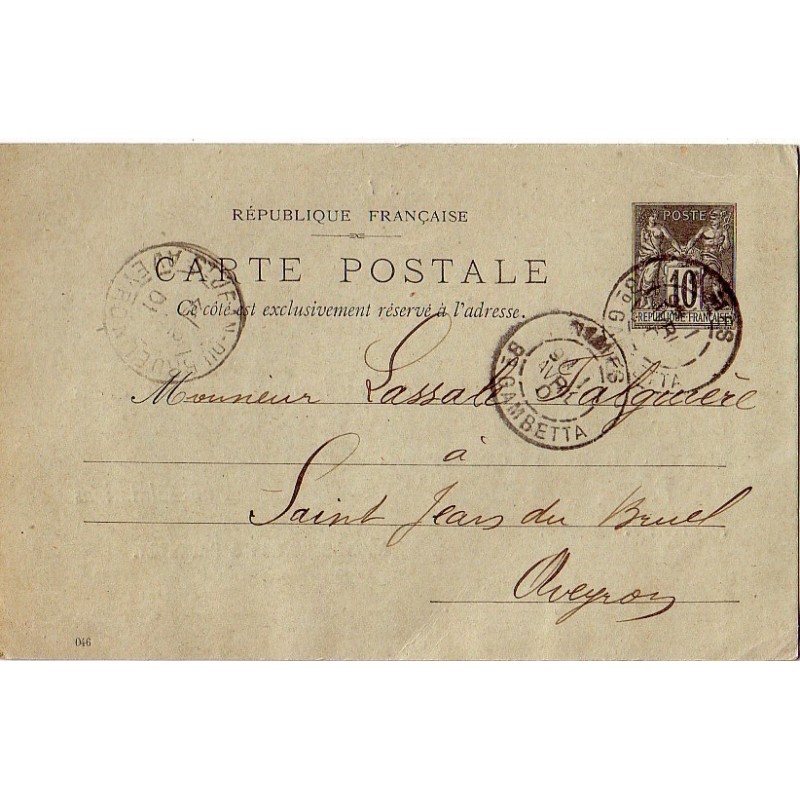 RÉPUBLIQUE FRANÇAISE
CARTE POSTALE
Ce côté est exclusivement réservé à l'adresse.
POSTE
10
REPUBLIQUE FRANÇAISE
NIMES
Bd GAMBETTA
AVEYRON
Monsieur Lassalle Falguière
à
Saint Jean du Bruel
Aveyron
046